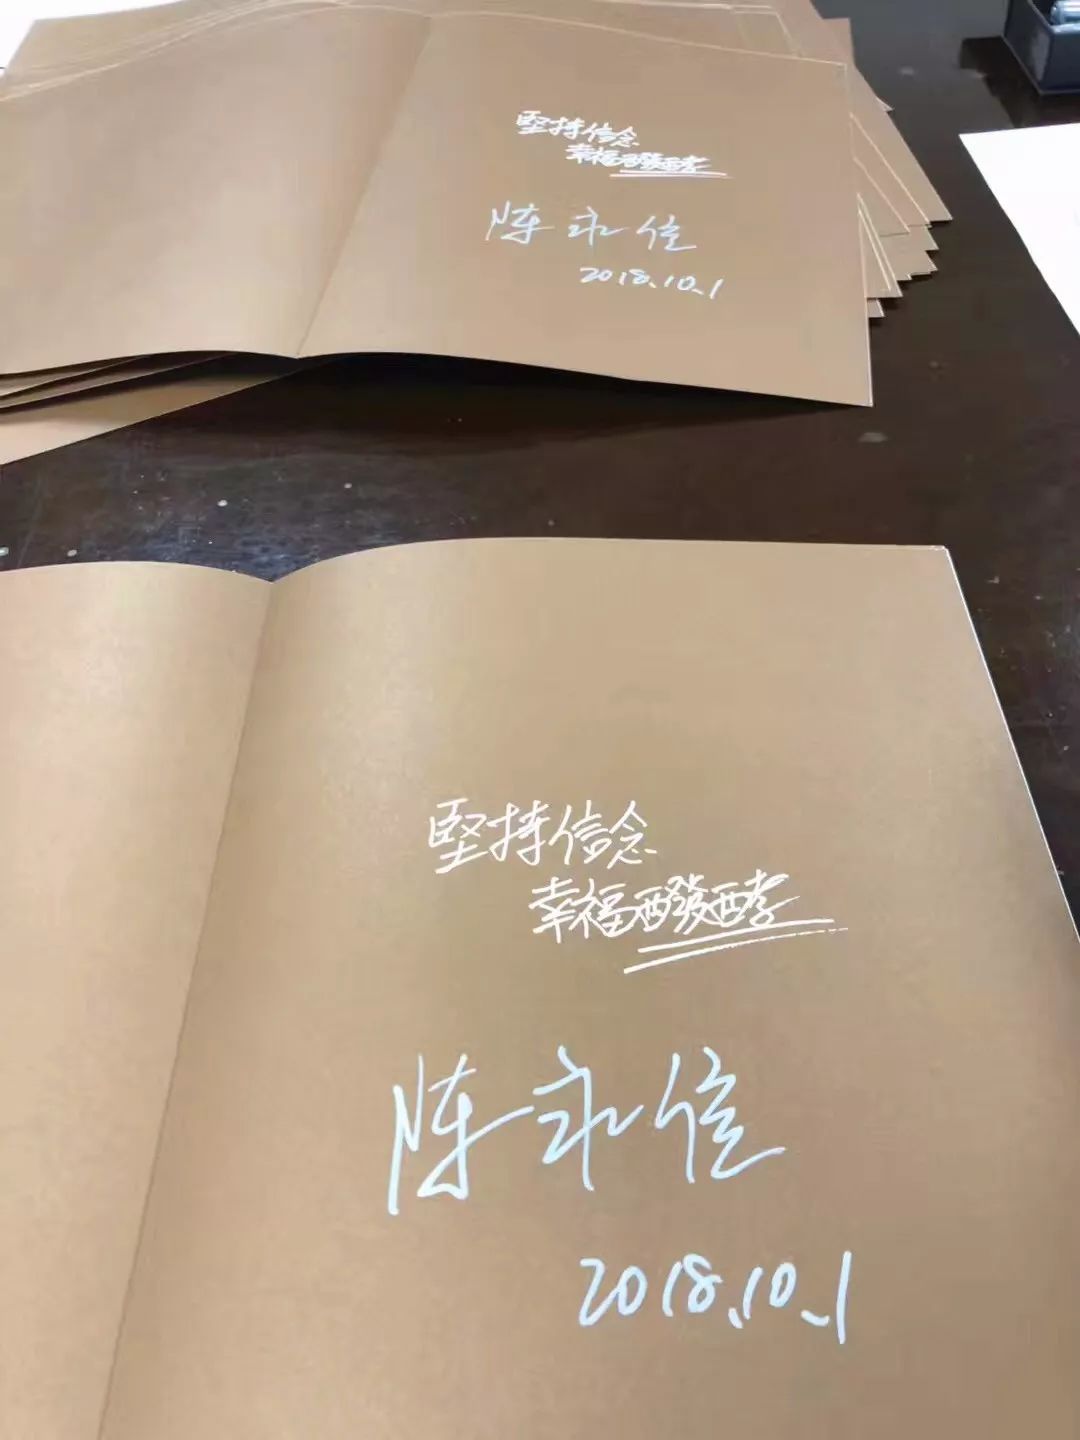 堅持信念
幸福醱發酵
陈永信
2018.10.1
堅持信念
幸福醱發酵
陈永信
2018.10.1